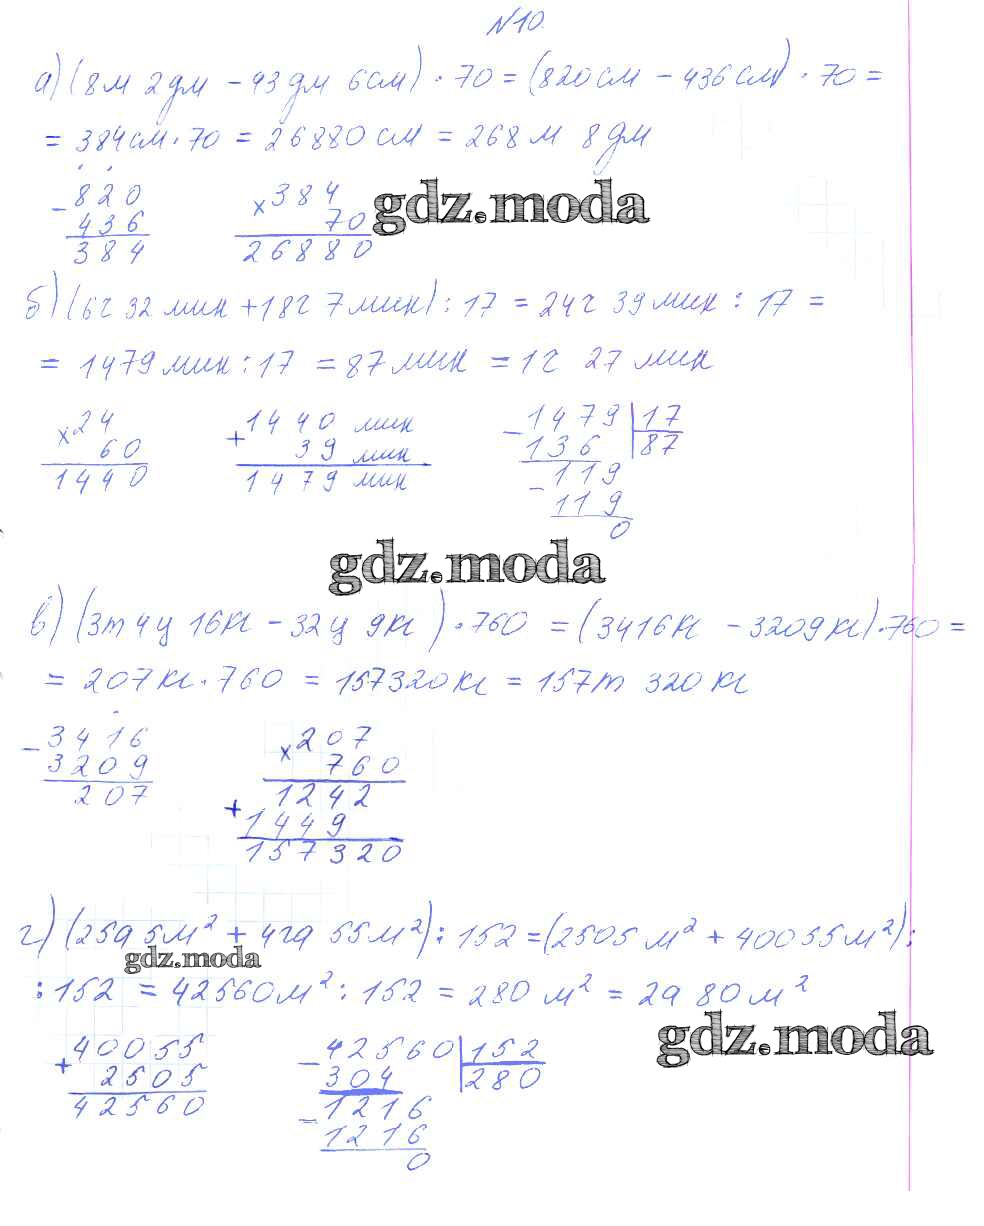 №10.
а) (8м 2дм - 43дм 6см) · 70 = (820см - 436см) · 70 =
= 384см · 70 = 26880см = 268м 8дм
- 820 × 384
436 70
384 26880
gdz.moda
б) (6ч 32мин + 18ч 7мин) : 17 = 24ч 39мин : 17 =
= 1479мин : 17 = 87мин = 1ч 27мин
× 24 + 1440 мин - 1479 | 17
60 39 мин 136 87
1440 1479 мин - 119
119
0
gdz.moda
в) (3т 4ц 16кг - 32ц 9кг) · 760 = (3416кг - 3209кг) · 760 =
= 207кг · 760 = 157320кг = 157т 320кг
- 3416 × 207
3209 760
207 1242
+ 1449
157320
г) (25а 5м² + 4га 55м²) : 152 = (2505м² + 40055м²) :
gdz.moda
: 152 = 42560м² : 152 = 280м² = 2а 80м²
gdz.moda
+ 40055 - 42560 | 152
2505 304 280
42560 - 1216
1216
0